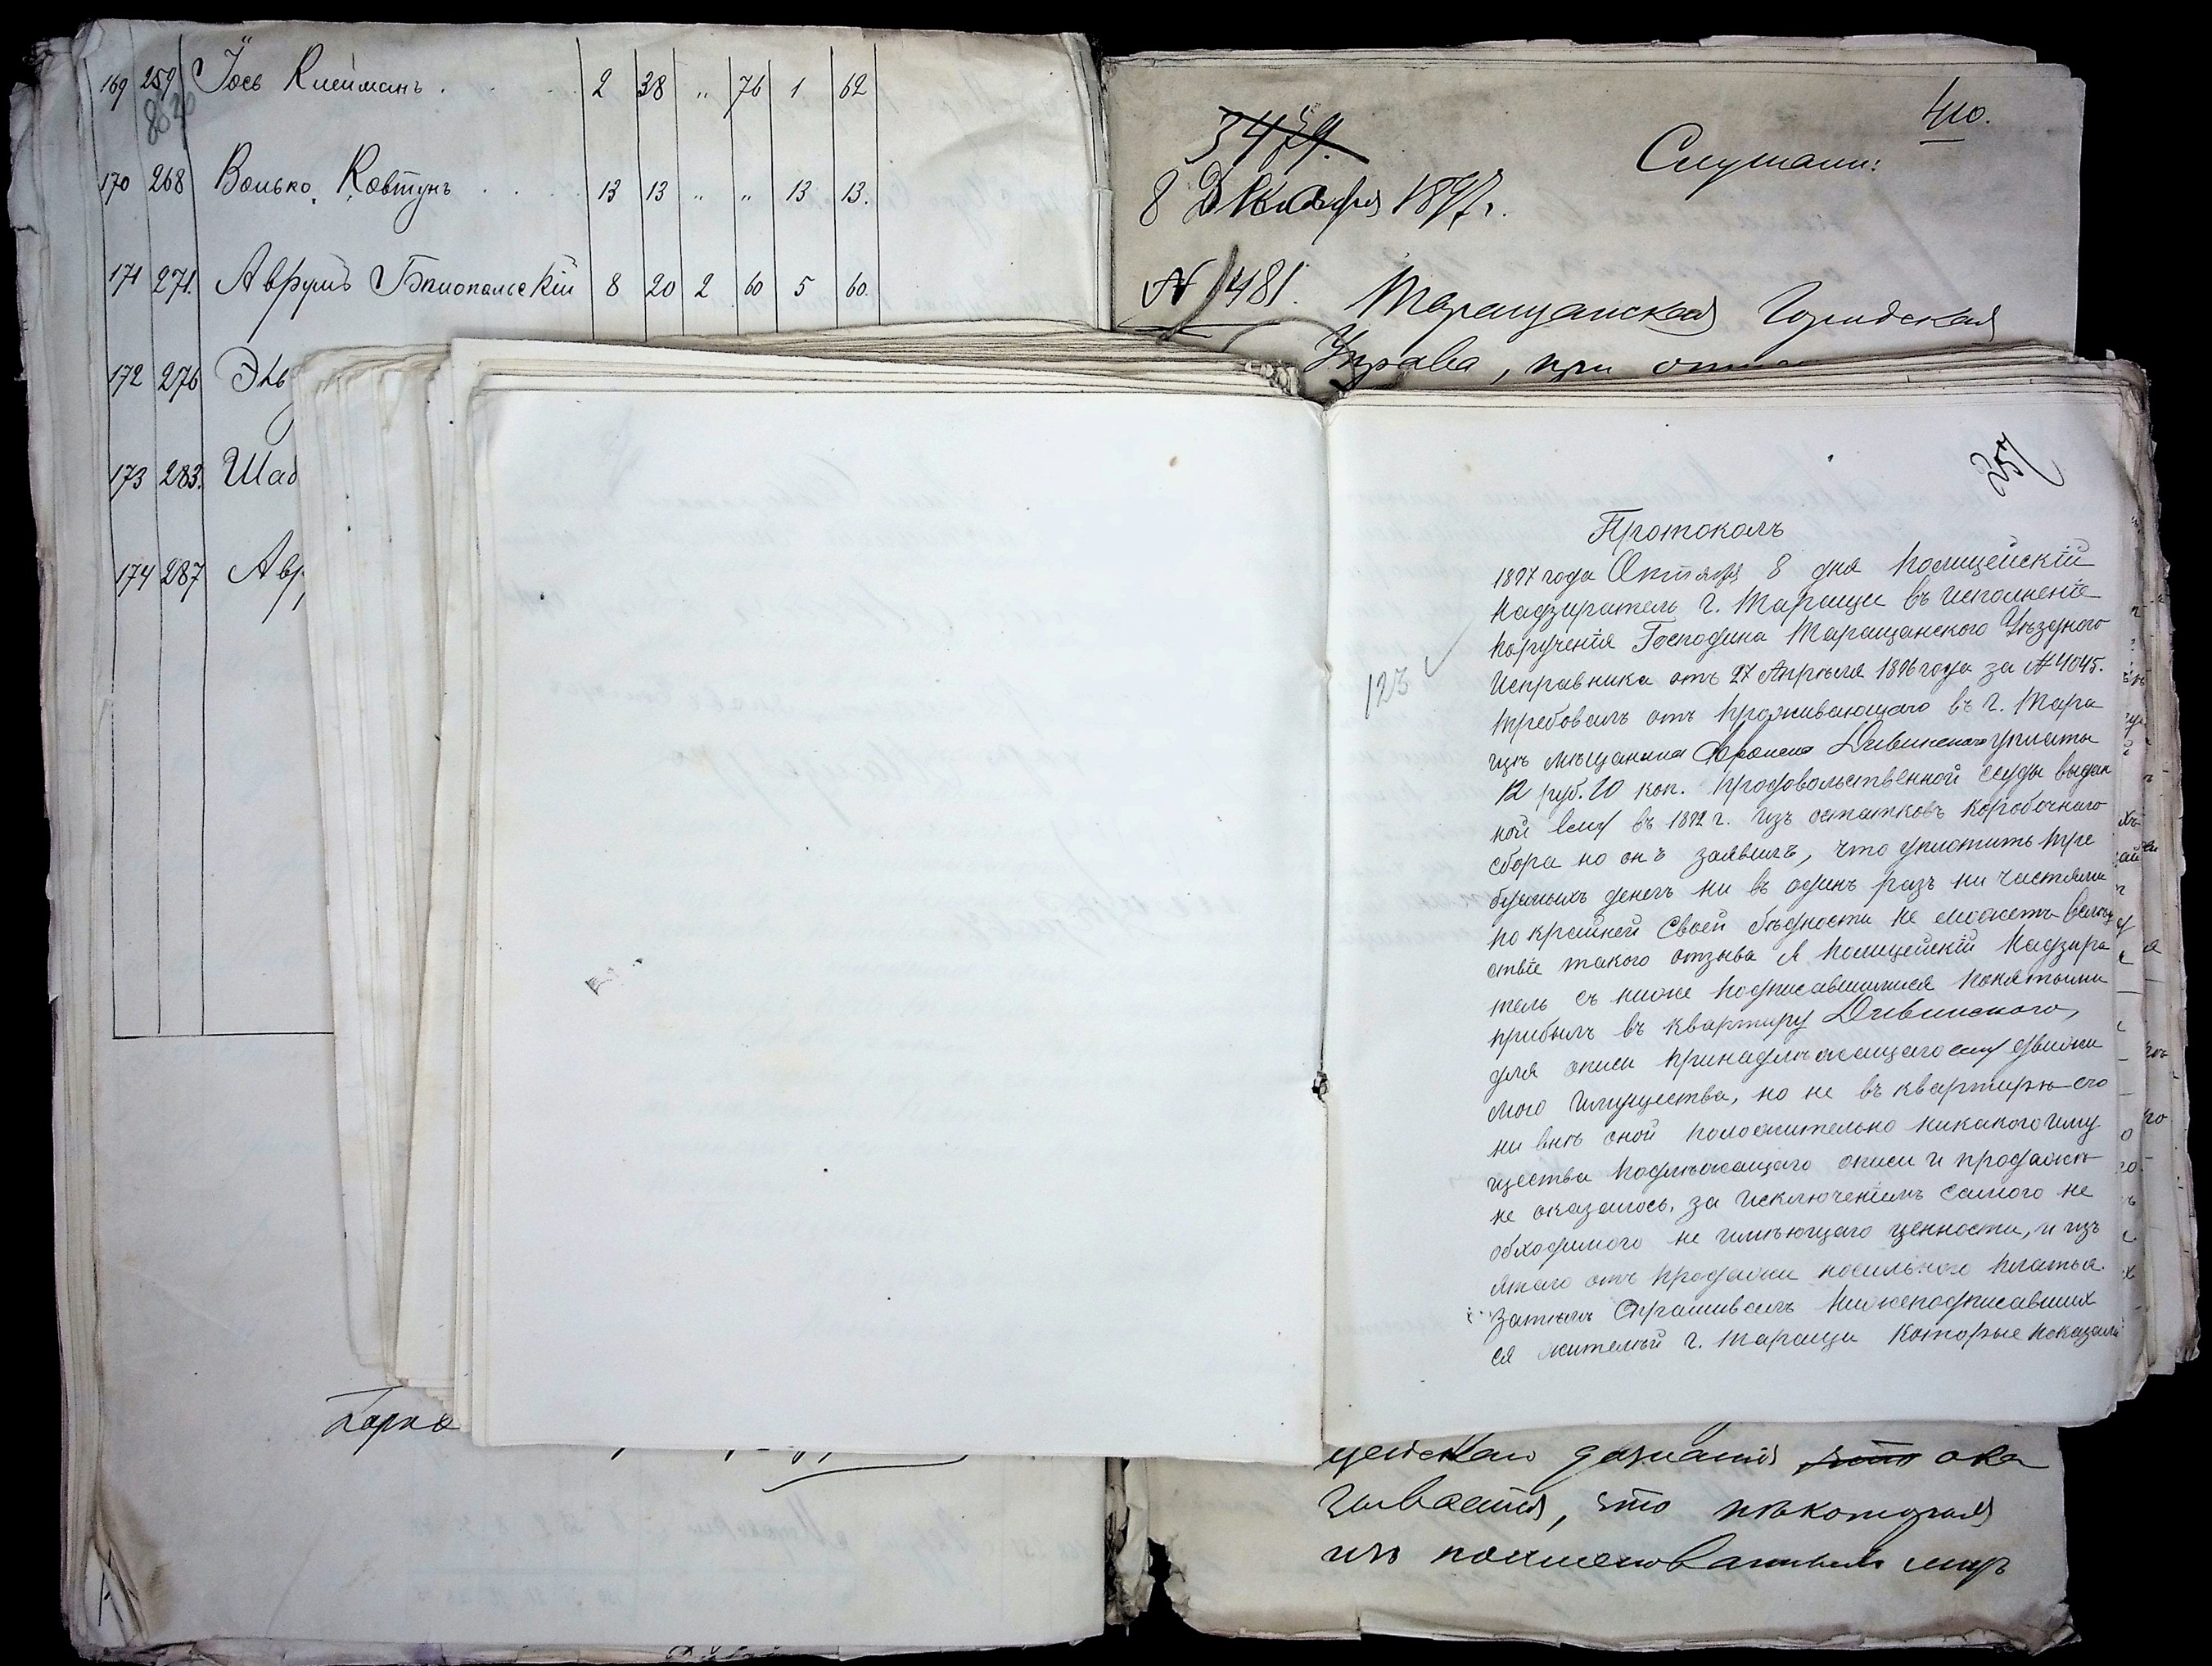 169 259 Іось Клейманъ . . . . 2 38 „ 76 1 62
8020
170 268 Волько Ковтунъ . . . . 13 13 „ „ 13 13.
171 271. Аврумъ Бялопольскій 8 20 2 60 5 60.
172 276
173 283.
174 287
410.
Слушали:
8 Декабря 1897 г.
№ 1481. Таращанская Городская
Управа, при
257
Протоколъ
1897 года Октября 8 дня Полицейскій
Надзиратель г. Таращи въ исполненіе
порученія Господина Таращанского Уѣздного
Исправника отъ 27 Апрѣля 1896 года за № 4045.
требовалъ отъ проживающаго въ г. Тара
123
щѣ мѣщанина Фроима Дивинского уплаты
12 руб. 20 коп. продовольственной ссуды выдан
ной ему въ 1892 г. изъ остатковъ коробочнаго
сбора но онъ заявилъ, что уплотить тре
буемыхъ денегъ ни въ одинъ разъ ни частями
по крайней своей бѣдности не можетъ вслѣд
ствіе такого отзыва я Полицейскій Надзира
тель съ ниже подписавшимися понятыми
прибылъ въ квартиру Дивинского,
для описи принадлѣжащаго ему движи
мого имущества, но не въ квартирѣ его
ни внѣ оной положительно никакого иму
щества подлѣжащаго описи и продажѣ
не оказалось, за исключеніемъ самого не
обходимого не имѣющаго ценности, и изъ
ятаго отъ продажи носильного платья.
Затѣмъ спрашивалъ нижеподписавших
ся жителѣй г. Таращи которые показали
цейскаго дознанія что ока
зывается, что нѣкоторыя
изъ поименованныхъ лицъ